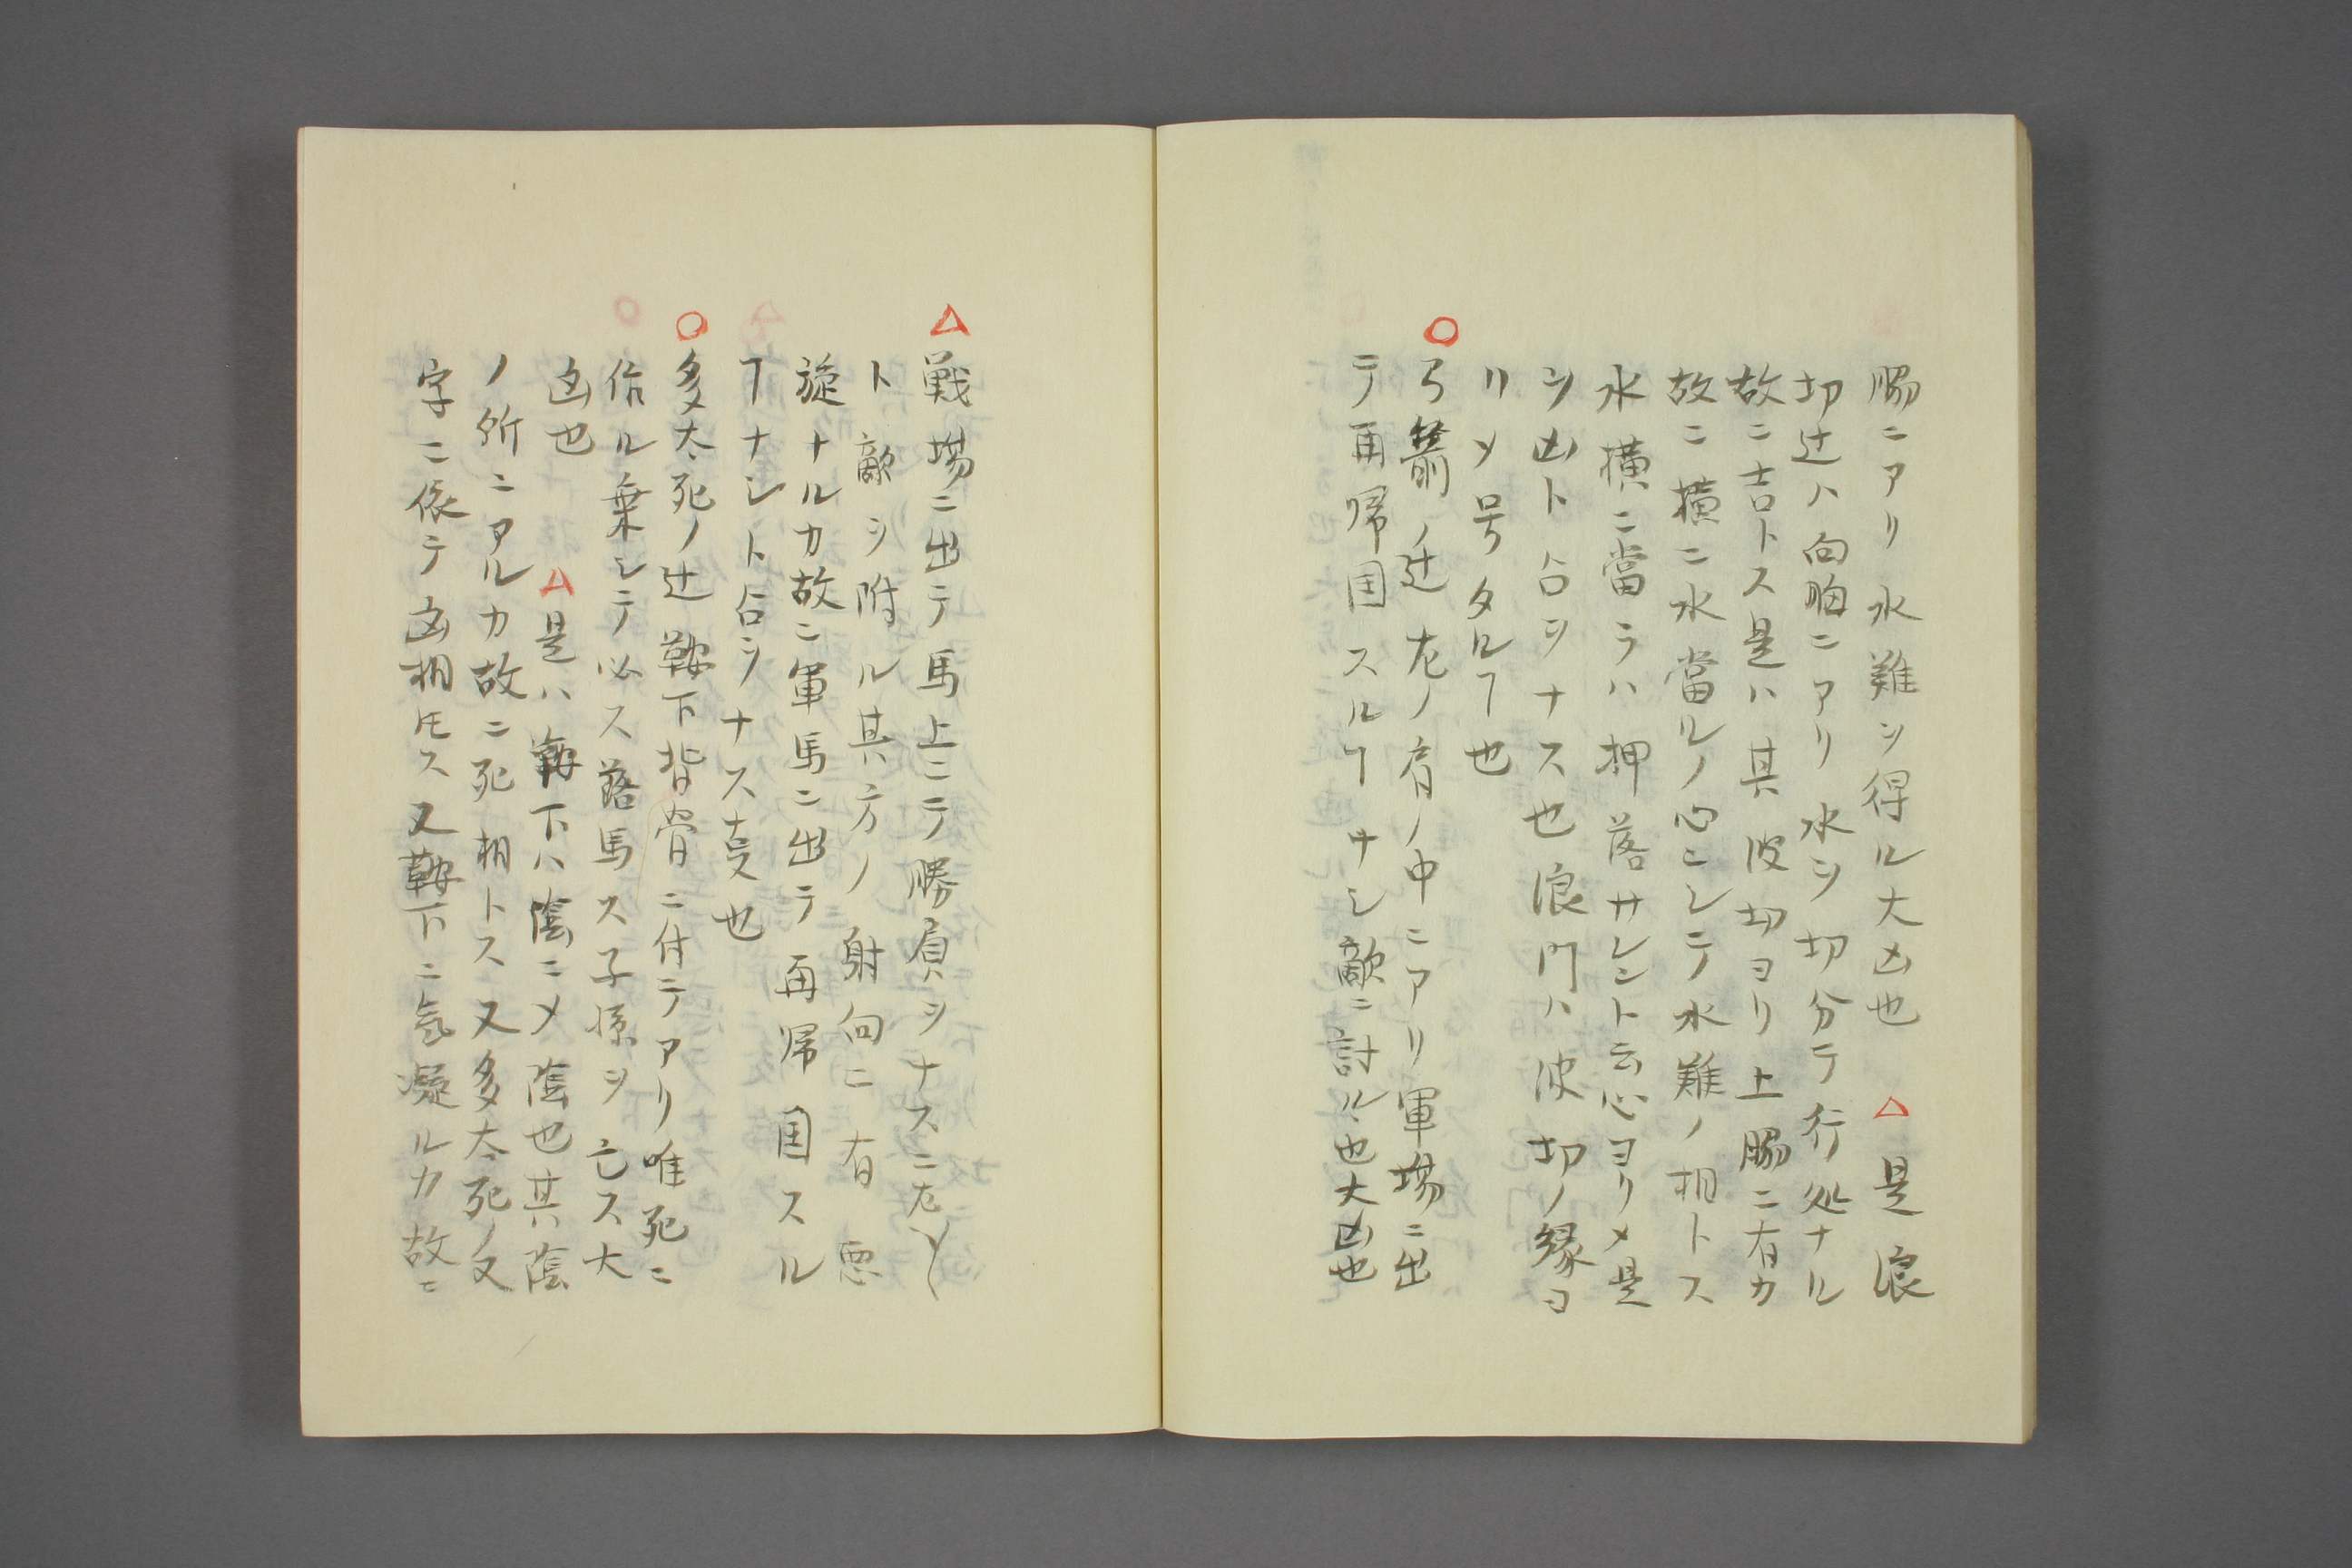 腸ニアリ水難ヲ得ル大凶也 △是浪
切辻ハ向胸ニアリ水ヲ切分テ行処ナル
故ニ吉トス是ハ其波切ヨリ上腸ニ有カ
故ニ横ニ水當ルノ心ニシテ水難ノ相トス
水横ニ當ラハ押落サレント云心ヨリメ是
ヲ凶ト占ヲナス也浪門ハ波切ノ縁ヨ
リメ号タルヿ也
○弓箭ノ辻左ノ肩ノ中ニアリ軍場ニ出
テ再帰国スルヿナシ敵ニ討ル也大凶也
△戦場ニ出テ馬上ニテ勝負ヲナスニ左〻
ト敵ヲ附ル其方ノ射向ニ有悪
旋ナルカ故ニ軍馬ニ出テ再帰国スル
ヿナシト占ヲナス叓也
○多太死ノ辻鞍下背骨ニ付テアリ唯死ニ
ル棄シテ必ス落馬ス子孫ヲ亡ス大
凶也 △是ハ鞍下ハ陰ニメ陰也其陰
ノ所ニアルカ故ニ死相トス又多太死ノ文
字ニ依テ凶相トモス又鞍下ニ気凝ルカ故ニ